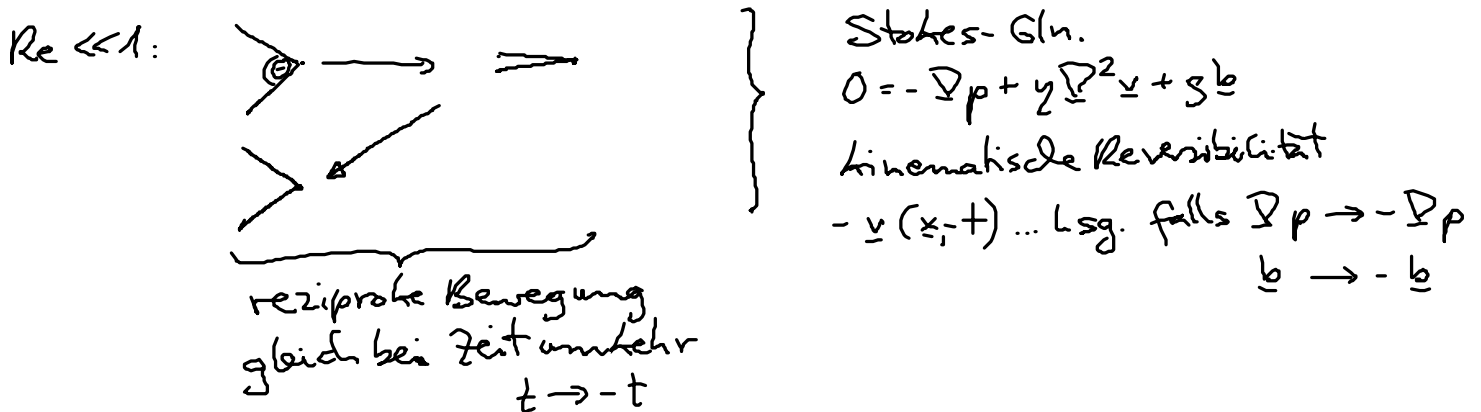 Re << 1:
Θ
reziproke Bewegung
gleich bei Zeitumkehr
t → - t
Stokes-Gln.
0 = - ∇p + η ∇² v + ρ b
kinematische Reversibilität
- v (x, -t) ... Lsg. falls ∇p → - ∇p
b → - b